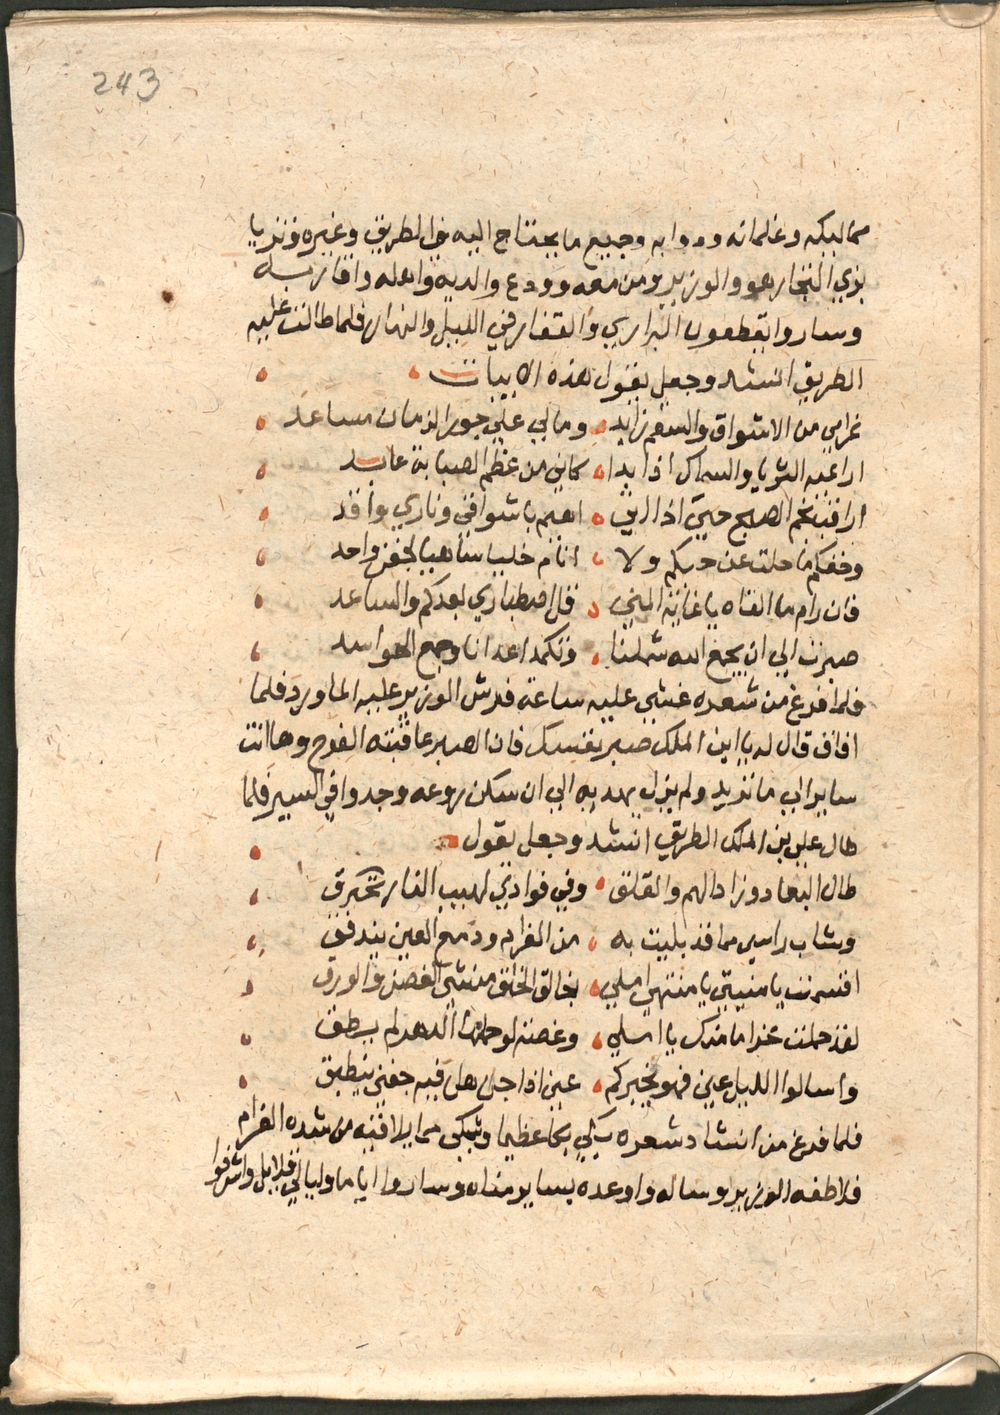 243
مماليكه وغلمانه ودوابه وجميع ما يحتاج اليه في الطريق وغيره وتزيا
بزي التجار هو والوزير ومن معه وودع والديه واهله واقاربه
وساروا يقطعون البراري والقفار في الليل والنهار فلما طالت عليه
الطريق انشد وجعل يقول هذه الابيات
غرامي من الاشواق والسقم زايد وما لي علي جور الزمان مساعد
اراعي الثريا والسماك اذا بدا كاني من عظم الصبابة عابد
اراقب نجم الصبح حتي اذا اتي اهيم باشواقي وناري واقد
وحقكم ما حلت عن حبكم ولا انا م
فان رام ما القاه يا غاية المني قل اصطباري بعدكم والمساعد
صبرت الي ان يجمع الله شملنا وتكمد اعدانا وجمع الحواسد
فلما فرغ من شعره غشي عليه ساعة فرش الوزير عليه الماورد فلما
افاق قال له يا ابن الملك صبر نفسك فان الصبر عاقبته الفرج وها انت
ساير الي ما تريد ولم يزل يهديه الي ان سكن روعه وجدوا في السير فلما
طال علي بن الملك الطريق انشد وجعل يقول
طال البعاد وزاد الهم والقلق وفي فوادي لهيب النار تحترق
وشاب راسي مما قد بليت به من الغرام ودمع العين يندفق
اقسمت يا منيتي يا منتهي املي بخالق الخلق منشي الغصن والورق
لقد حملت غراما منك يا املي وغصة لو حملها الدهر لم يطق
واسالوا الليل عني فهو يخبركم عني اذا جن هل فيه جفني ينطبق
فلما فرغ من انشاد شعره بكي بكا عظيما وشكي مما يلاقيه من شدة الغرام
فلاطفه الوزير وساله واوعده بساير مناه وساروا اياما وليالي قلايل واشرفوا